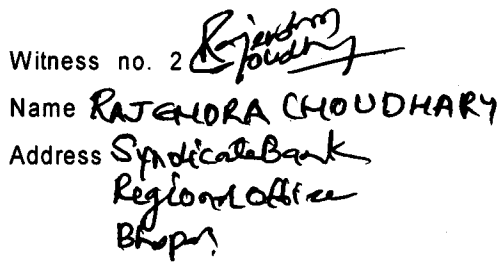 Witness no. 2 Rajendra Choudhary
Name RAJENDRA CHOUDHARY
Address Syndicate Bank
Regional Office
Bhopal